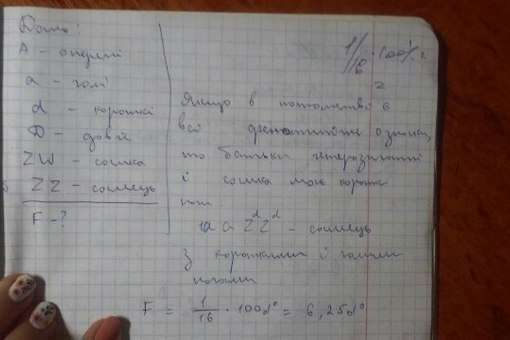 Дано:
A - оперені
a - голі
d - короткі
D - довгі
ZW - самка
ZZ - самець
F - ?
1/6 · 100% =
=
Якщо в потомстві є
всі фенотипічні ознаки,
то батьки гетерозиготні
і самка має короткі
ноги.
aa Z^d Z^d - самець
з короткими і голими
ногами
F = 1/16 · 100% = 6,25%